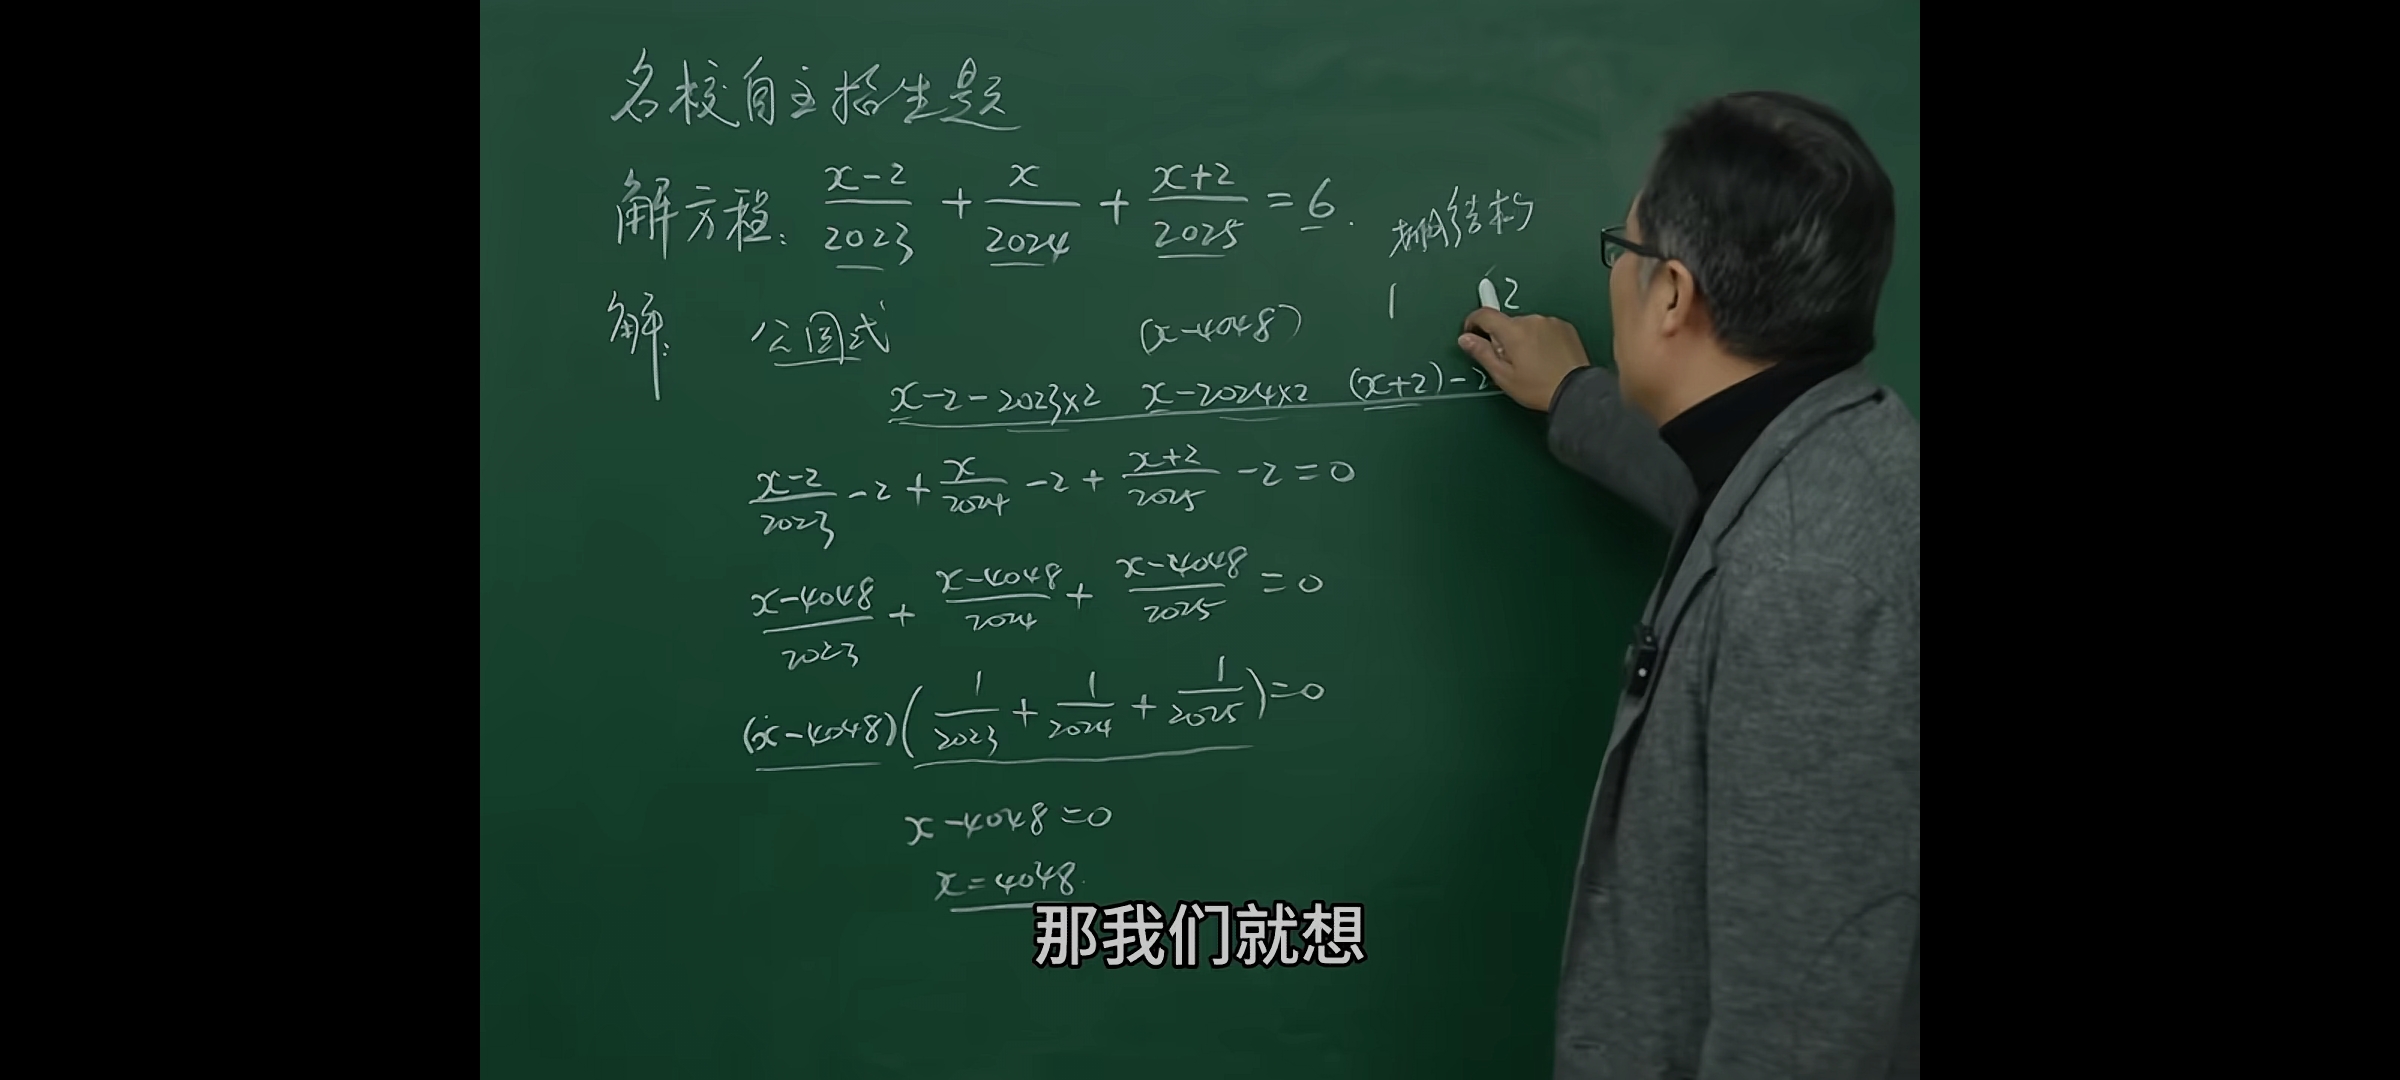 名校自主招生题
解方程: x-2/2023 + x/2024 + x+2/2025 = 6.
结构
解: 公因式 (x-4048) 1 2
x-2-2023×2 x-2024×2 (x+2)-2
x-2/2023 -2 + x/2024 -2 + x+2/2025 -2 = 0
x-4048/2023 + x-4048/2024 + x-4048/2025 = 0
(x-4048)(1/2023 + 1/2024 + 1/2025) = 0
x-4048=0
x=4048.
那我们就想